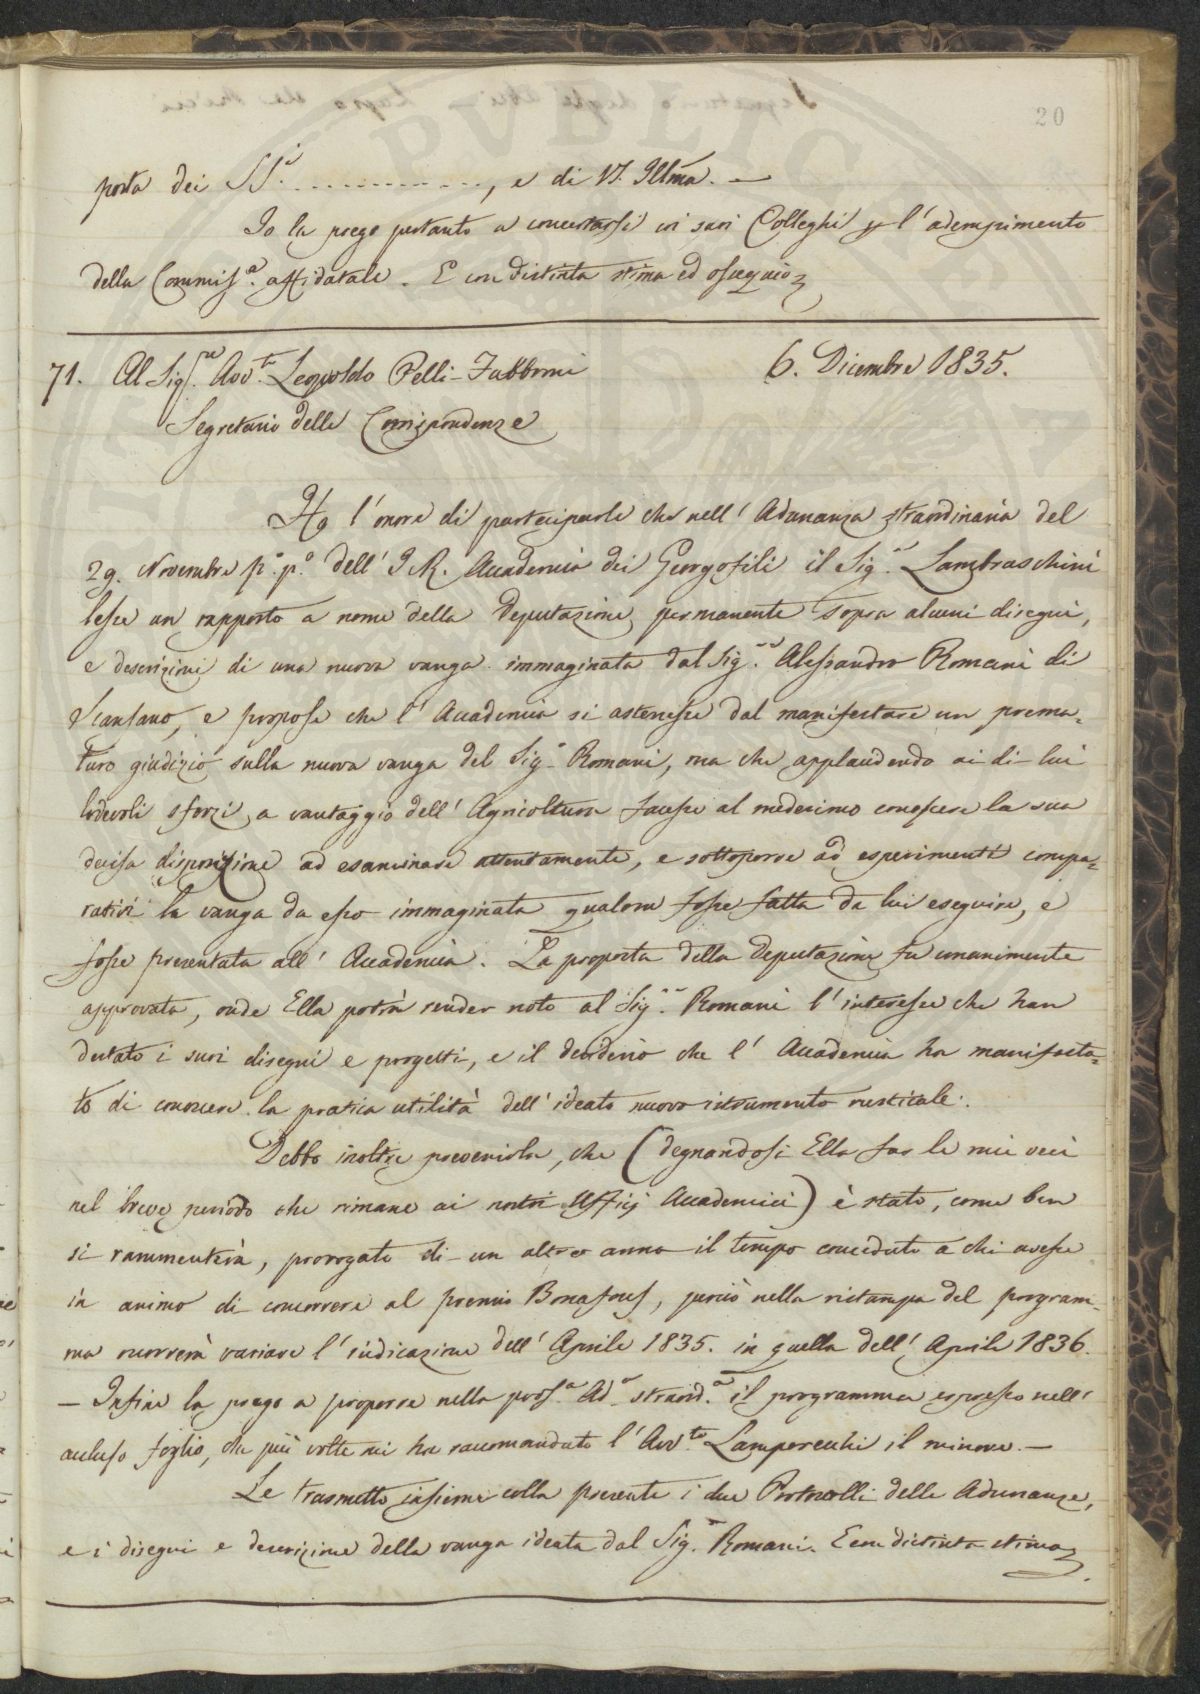 20
posta dei SS.i ................, e di V.S. Illma. —
Io la prego pertanto a concertarsi coi suoi Colleghi p l'adempimento
della Commiss.e affidatale. E con distinta stima ed ossequio
71. Al Sig.r Avv.to Leopoldo Pelli-Fabbroni 6. Dicembre 1835.
Segretario delle Corrispondenze
Ho l'onore di parteciparle che nell'Adunanza straordinaria del
29. Novembre p.o p.o dell'I. R. Accademia dei Georgofili il Sig.r Lambruschini
lesse un rapporto a nome della Deputazione permanente sopra alcuni disegni,
e descrizioni di una nuova vanga immaginata dal Sig.r Alessandro Romani di
Scansano, e propose che l'Accademia si astenesse dal manifestare un prema-
turo giudizio sulla nuova vanga del Sig.r Romani, ma che applaudendo ai di lui
lodevoli sforzi a vantaggio dell'Agricoltura facesse al medesimo conoscere la sua
decisa disposizione ad esaminare attentamente, e sottoporre ad esperimenti compa-
rativi la vanga da esso immaginata qualora fosse fatta da lui eseguire, e
fosse presentata all'Accademia. La proposta della Deputazione fu unanimente
approvata, onde Ella potrà render noto al Sig.r Romani l'interesse che han
destato i suoi disegni e progetti, e il desiderio che l'Accademia ha manifesta-
to di conoscere la pratica utilità dell'ideato nuovo istrumento rusticale.
Debbo inoltre prevenirla, che (degnandosi Ella far le mie veci
nel breve periodo che rimane ai nostri Uffizj Accademici) è stato, come ben
si rammenterà, prorogato di un altro anno il tempo conceduto a chi avesse
in animo di concorrere al premio Bonafous, perciò nella ristampa del program-
ma occorrerà variare l'indicazione dell'Aprile 1835. in quella dell'Aprile 1836.
— Infine la prego a proporre nella pross.a Ad.a straord.a il programma espresso nell'
accluso foglio, che più volte mi ha raccomandato l'Avv.to Lamporecchi il minore. —
Le trasmetto insieme colla presente i due Protocolli delle Adunanze,
e i disegni e descrizione della vanga ideata dal Sig.r Romani. E con distinta stima